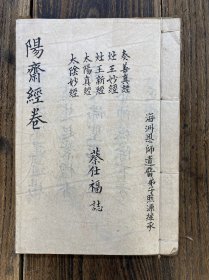 海洲恩師遺齋弟子照源継承
奏善真經
灶王妙經
灶王新經
太陽真經
太陰妙經
蔡仕福誌
陽齋經卷